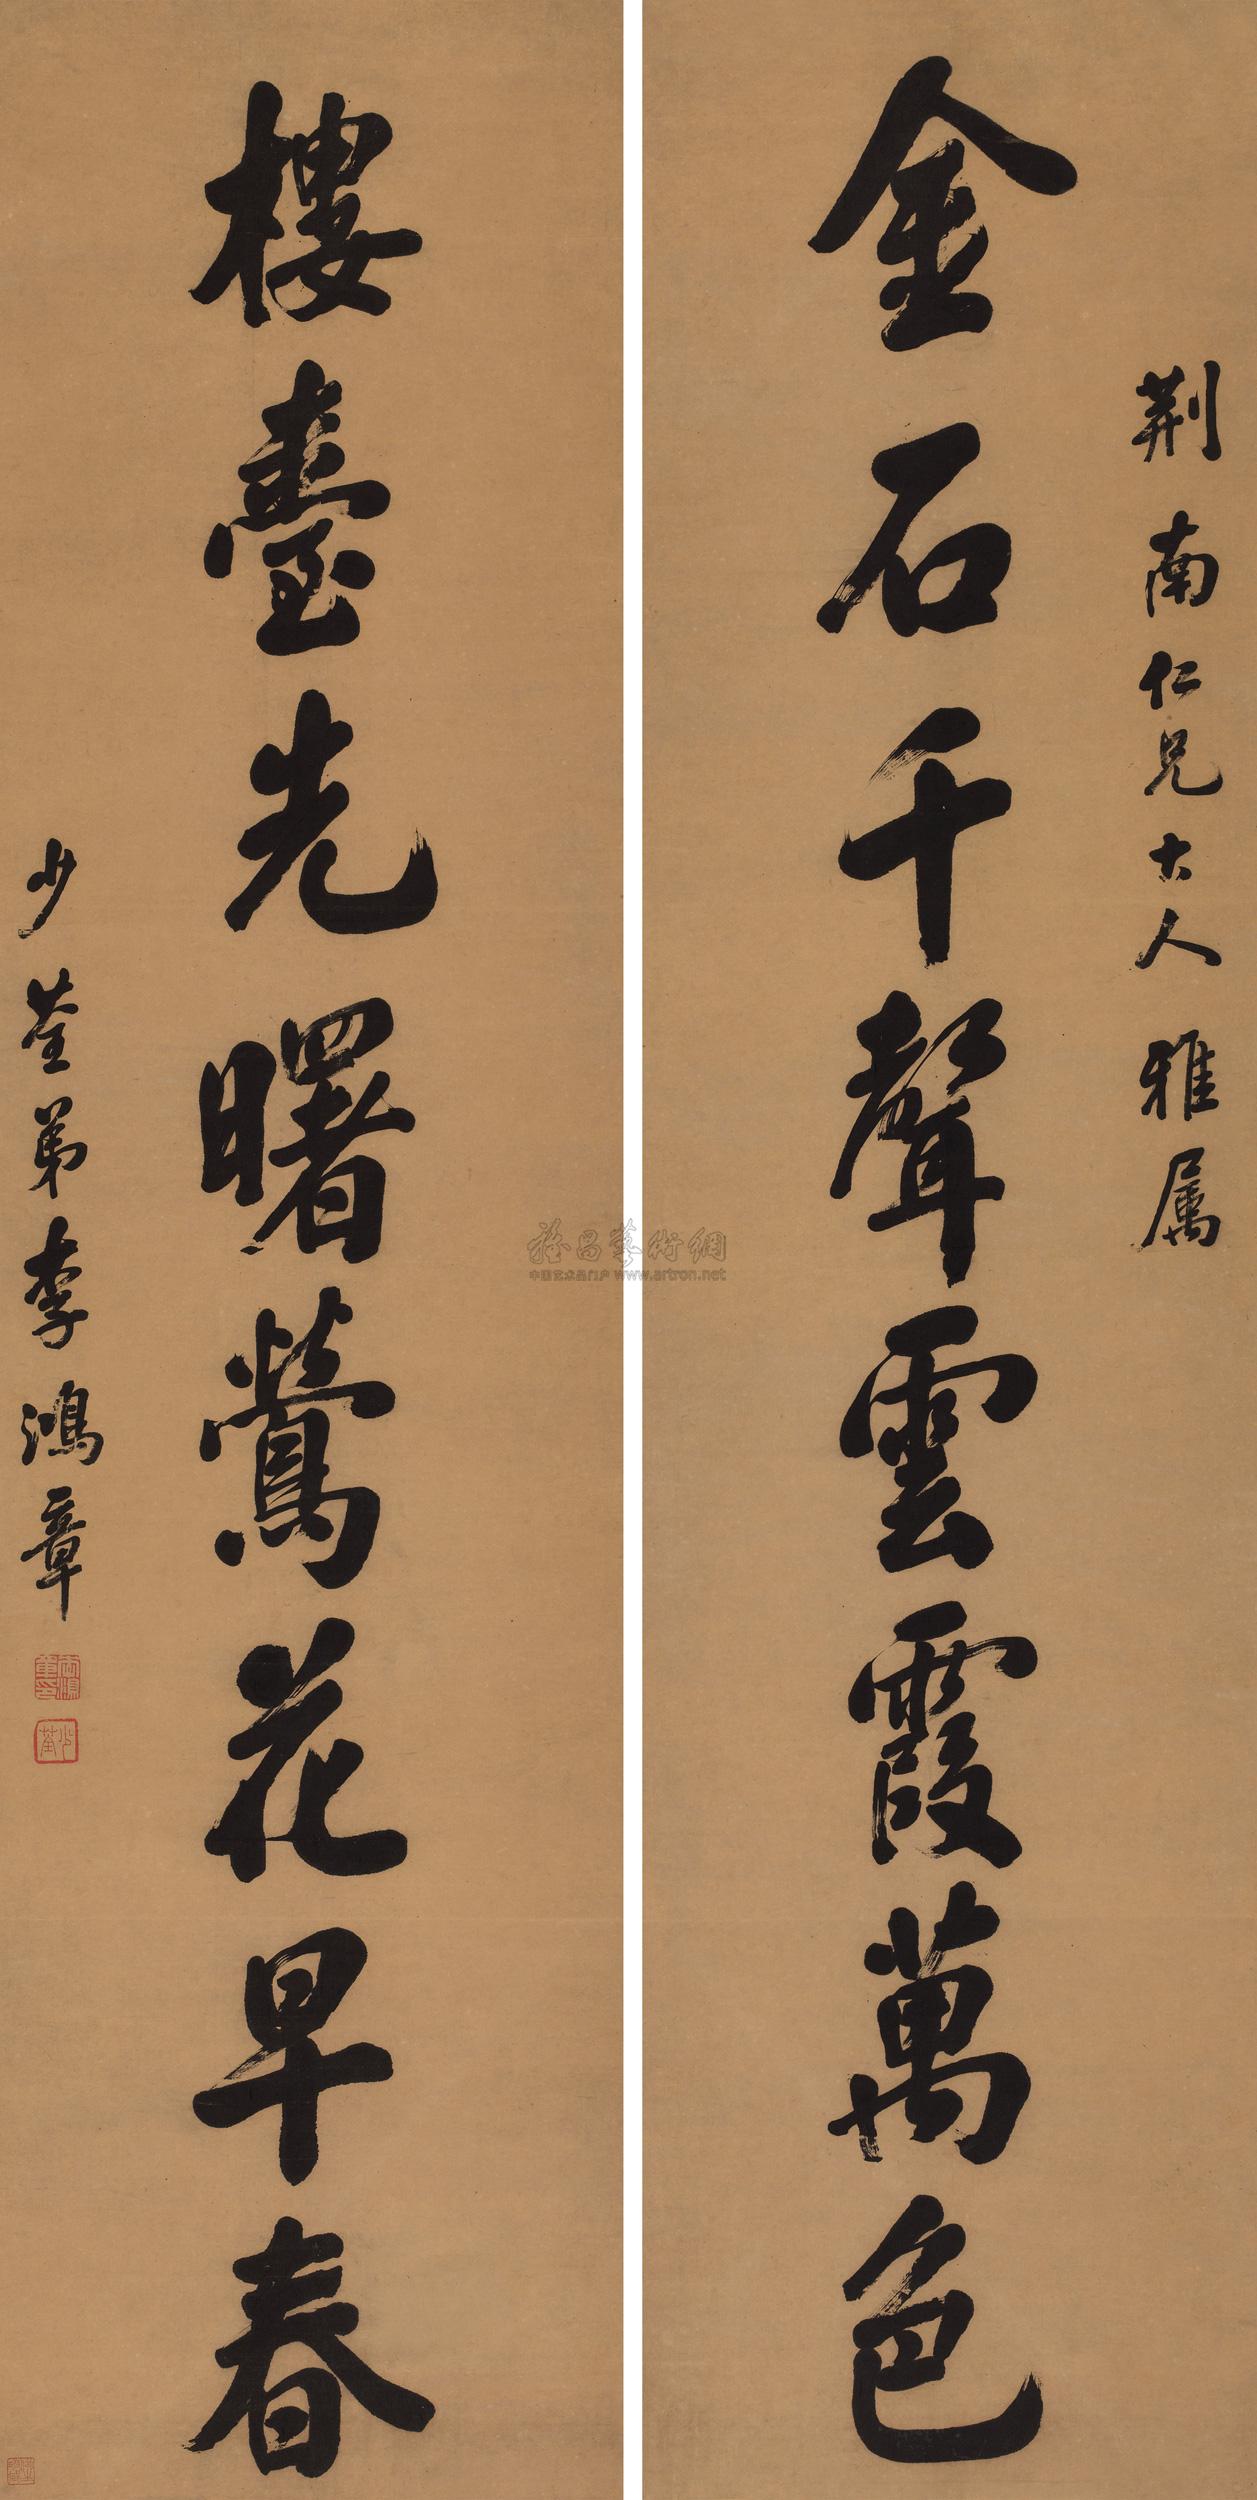 荆南仁兄大人雅属
金石千聲雲霞萬色
樓臺先曙鶯花早春
少荃弟李鴻章
少荃
雅昌藝術網
中国艺术品门户 www.artron.net